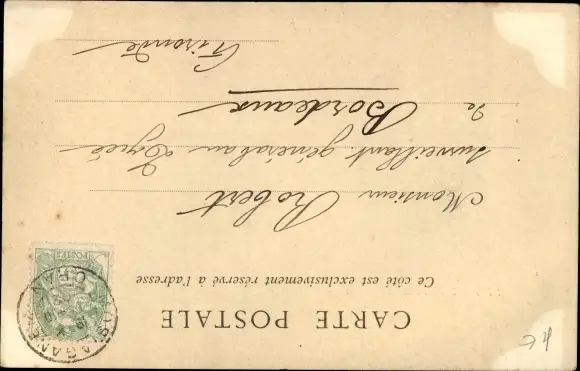 CARTE POSTALE
Ce côté est exclusivement réservé à l'adresse
Monsieur Robert
Surveillant général au Lycée
de
Bordeaux
Gironde
POSTES
ORAN